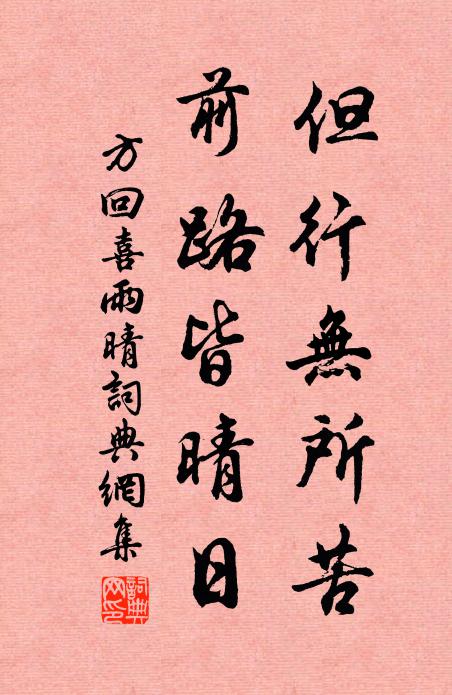 但行無所苦
前路皆晴日
方回喜雨晴詞典網集
詞典
网印